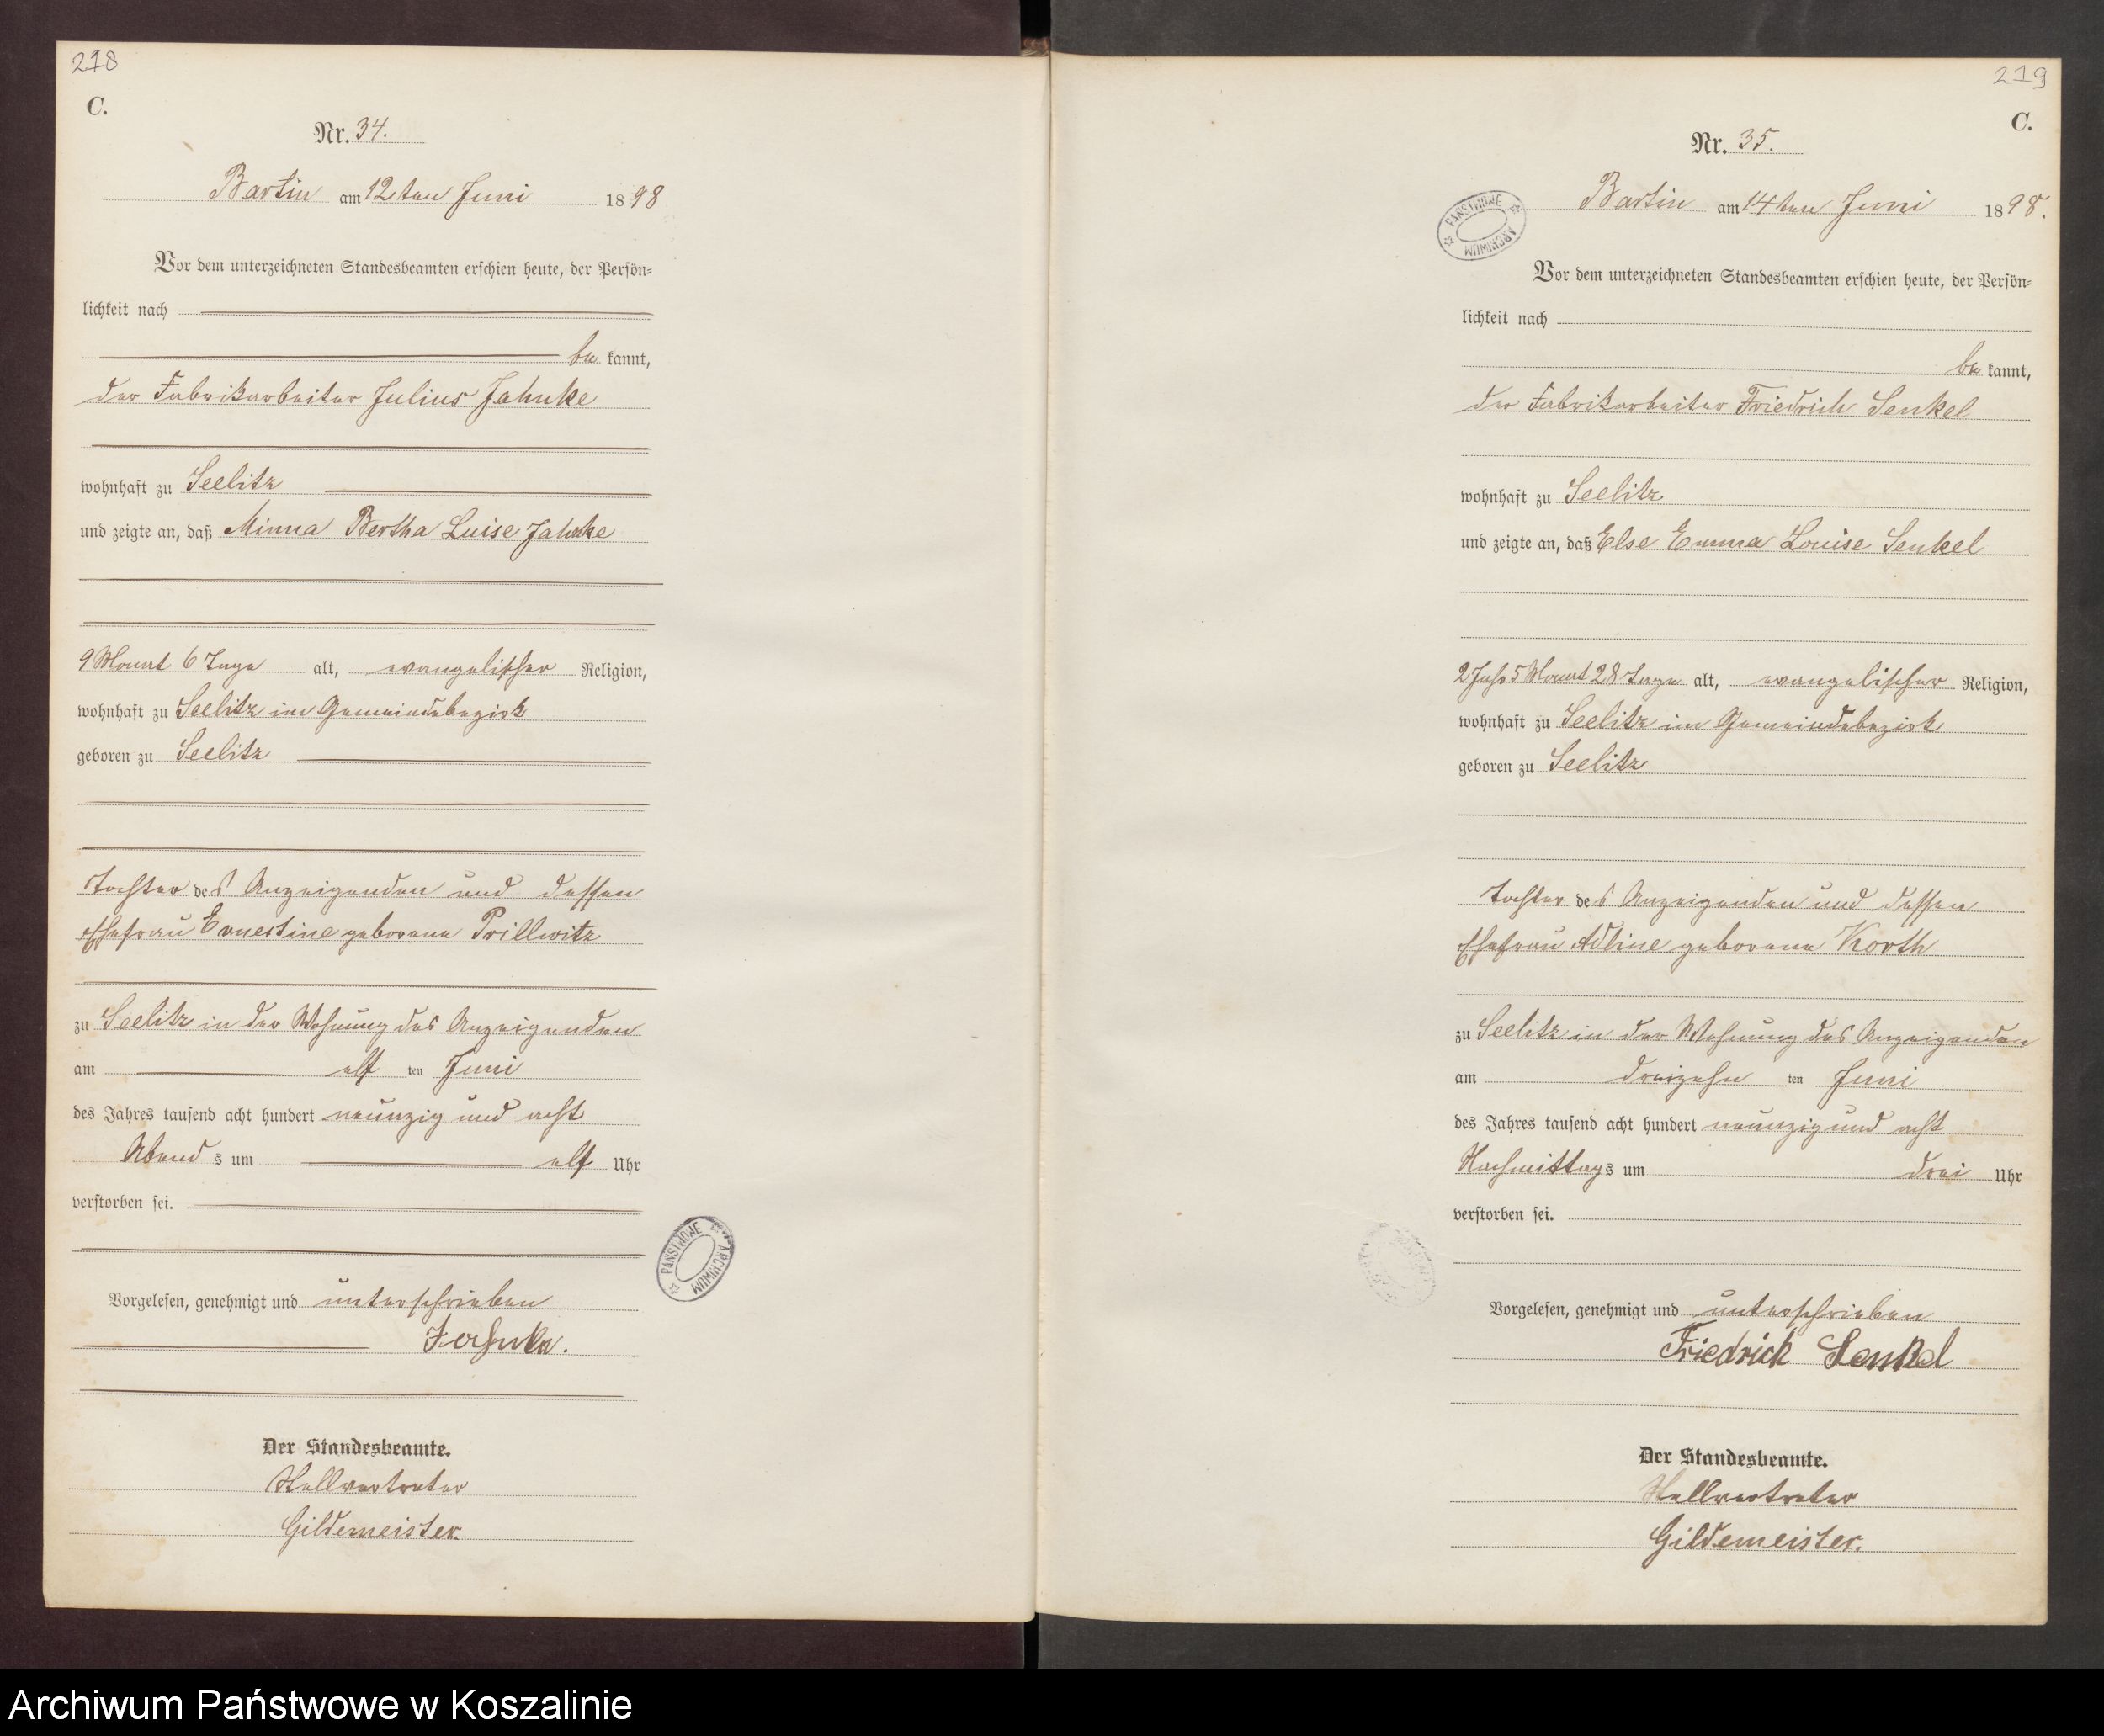 218
C.
Nr. 34.
Bartin am 12ten Juni 1898
Vor dem unterzeichneten Standesbeamten erschien heute, der Persön-
lichkeit nach
be kannt,
der Fabrikarbeiter Julius Jahnke
wohnhaft zu Seelitz
und zeigte an, daß Minna Bertha Luise Jahnke
9 Monat 6 Tage alt, evangelischer Religion,
wohnhaft zu Seelitz im Gemeindebezirk
geboren zu Seelitz
Tochter des Anzeigenden und dessen
Ehefrau Ernestine geborene Prillwitz
zu Seelitz in der Wohnung des Anzeigenden
am elf ten Juni
des Jahres tausend acht hundert neunzig und acht
Abend s um elf Uhr
verstorben sei.
Vorgelesen, genehmigt und unterschrieben
Jahnke.
Der Standesbeamte.
Stellvertreter
Gildemeister.
PAŃSTWOWE ARCHIWUM
219
C.
Nr. 35.
Bartin am 14ten Juni 1898.
PAŃSTWOWE ARCHIWUM
Vor dem unterzeichneten Standesbeamten erschien heute, der Persön-
lichkeit nach
be kannt,
der Fabrikarbeiter Friedrich Senkel
wohnhaft zu Seelitz
und zeigte an, daß Else Emma Louise Senkel
2 Jahr 5 Monat 28 Tage alt, evangelischer Religion,
wohnhaft zu Seelitz im Gemeindebezirk
geboren zu Seelitz
Tochter des Anzeigenden und dessen
Ehefrau Adline geborene Korth
zu Seelitz in der Wohnung des Anzeigenden
am dreizehn ten Juni
des Jahres tausend acht hundert neunzig und acht
Nachmittags um drei Uhr
verstorben sei.
Vorgelesen, genehmigt und unterschrieben
Friedrick Senkel
Der Standesbeamte.
Stellvertreter
Gildemeister.
Archiwum Państwowe w Koszalinie